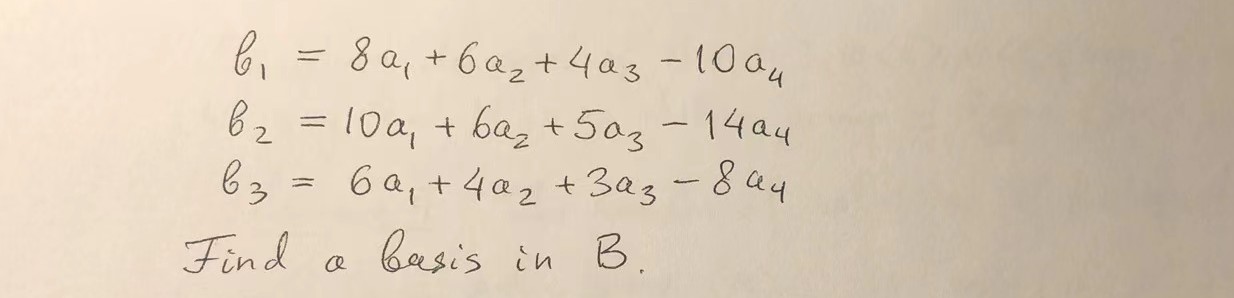 b₁ = 8a₁ + 6a₂ + 4a₃ - 10a₄
b₂ = 10a₁ + 6a₂ + 5a₃ - 14a₄
b₃ = 6a₁ + 4a₂ + 3a₃ - 8a₄
Find a basis in B.